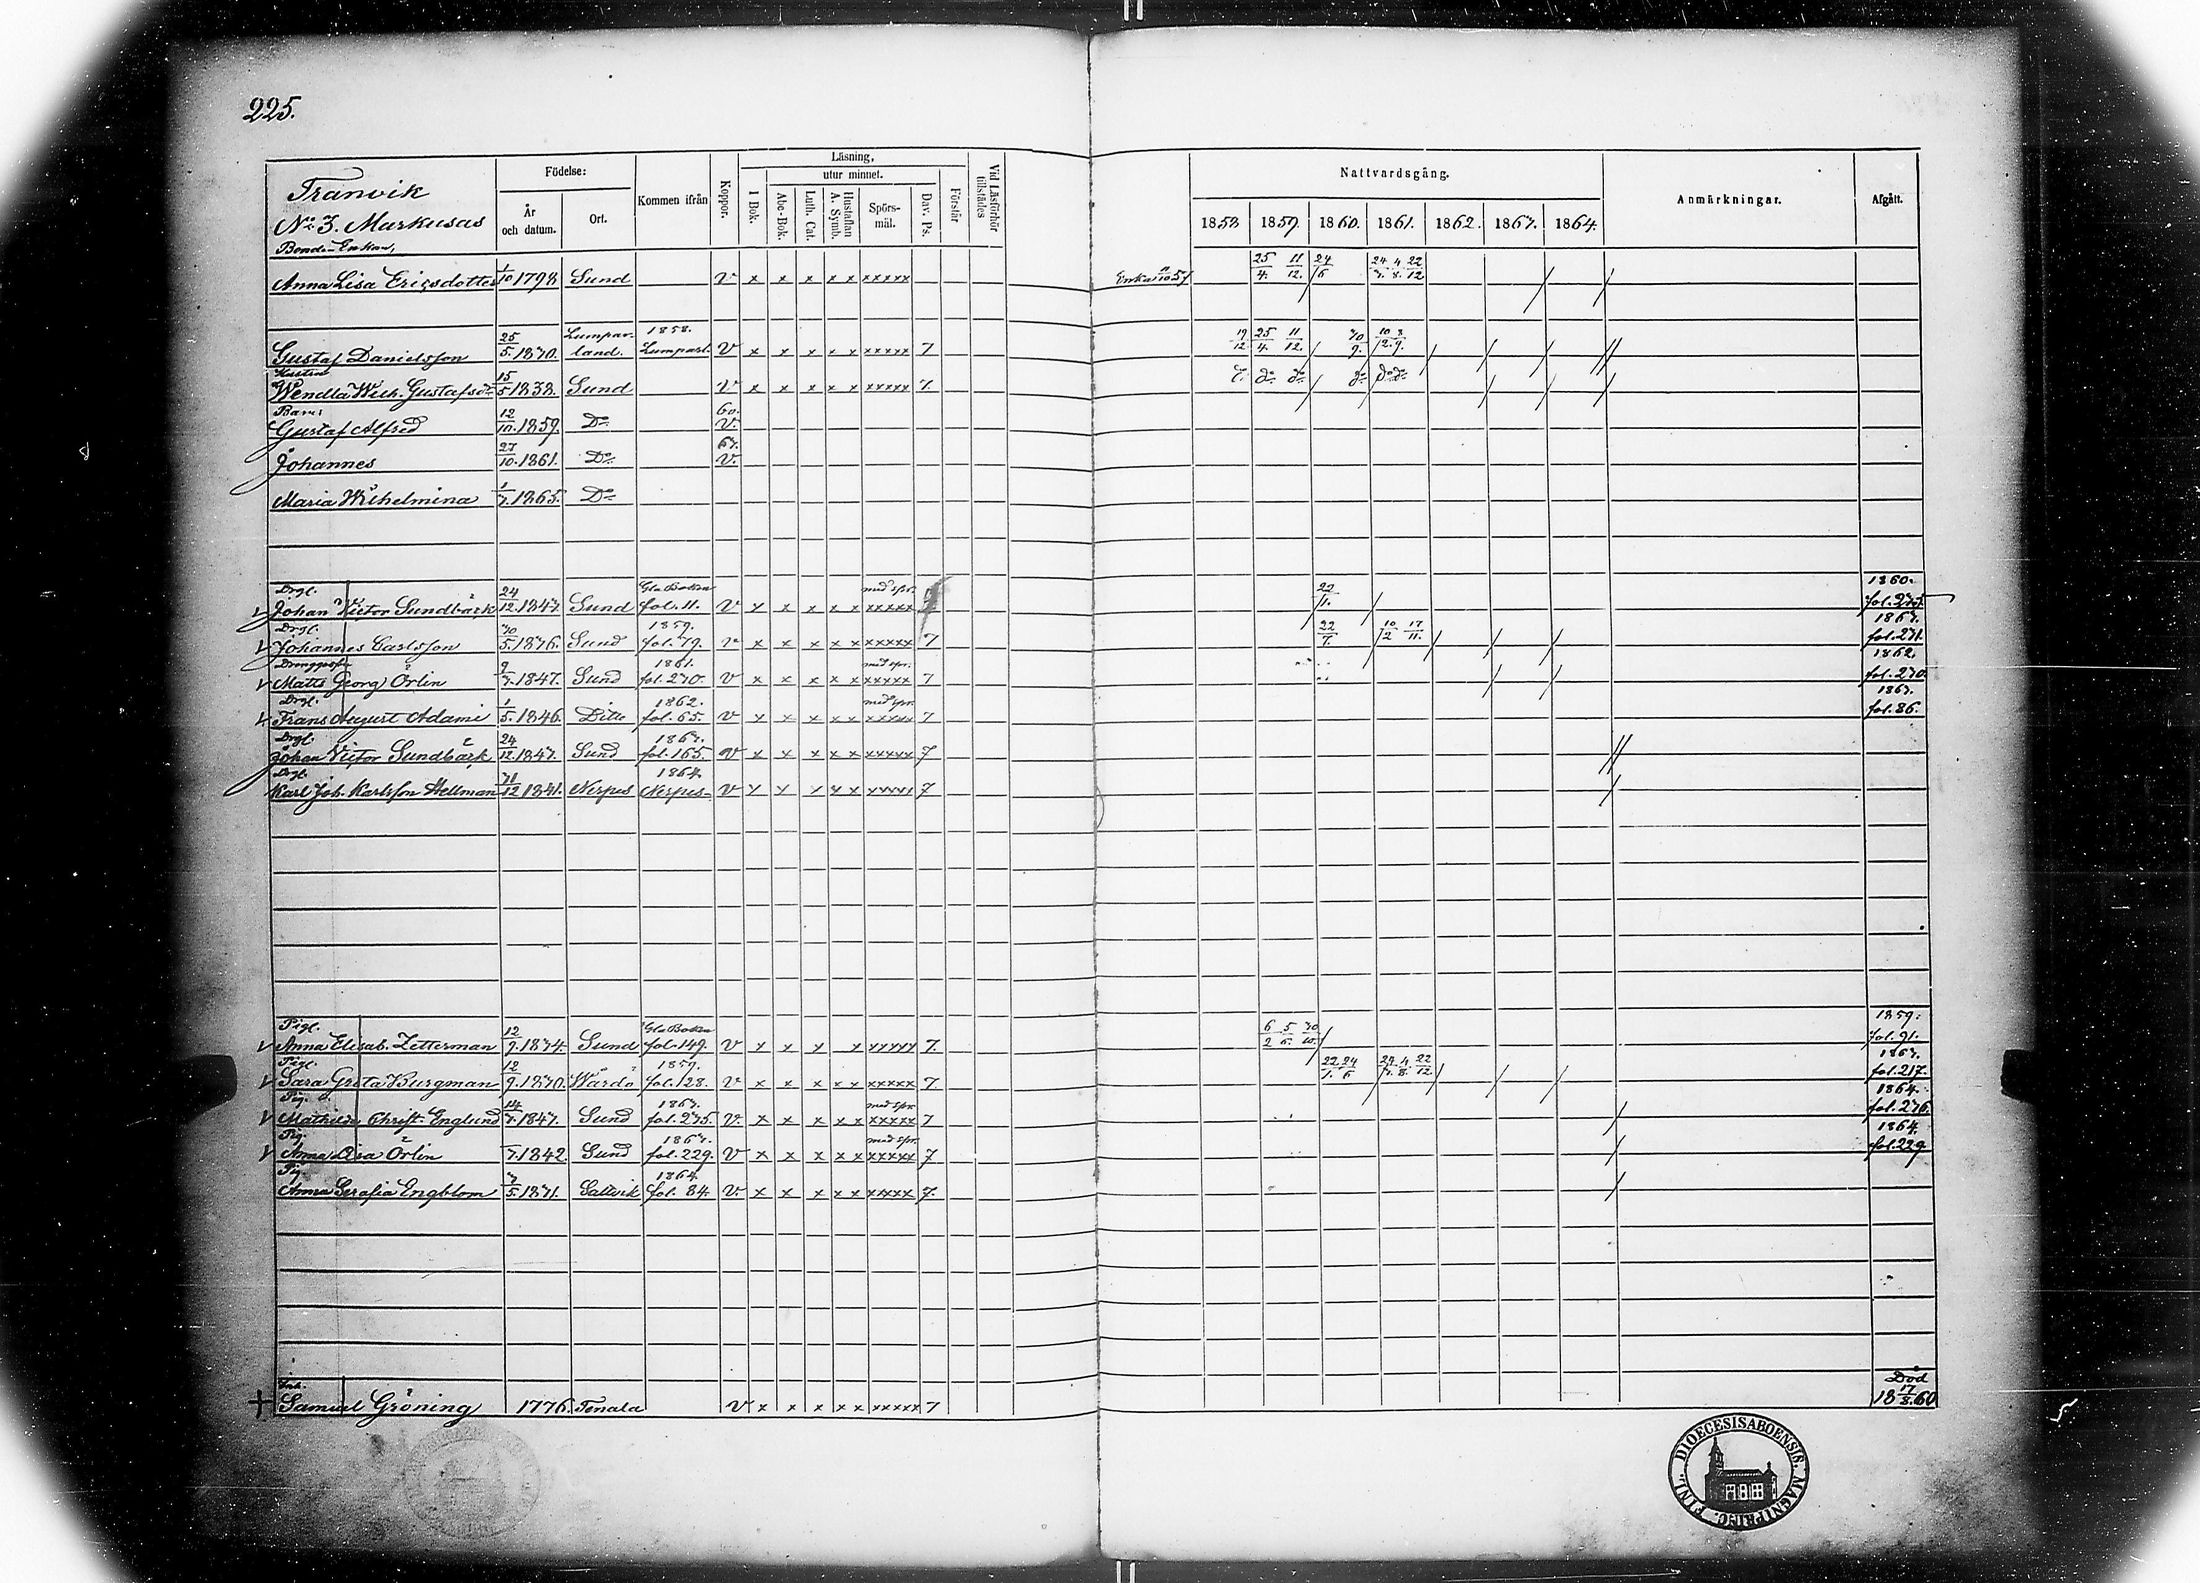 225.
Tranvik
No 3. Markusas
Födelse:
År och datum.
Ort.
Kommen ifrån
Koppor.
Läsning,
I Bok.
utur minnet.
Abc-Bok.
Luth. Cat.
Hustaflan A. Symb.
Spörs-mål.
Dav. Ps.
Förstår
Vid Läsförhör tillstädes
Nattvardsgång.
1858 1859. 1860. 1861. 1862. 1863. 1864.
Anmärkningar.
Afgått.
Bonde-Enkan,
Anna Lisa Ericsdotter 1/10 1798 Sund v x x x x x xxxxx Enka 57 25/4. 11/12. 24/6 22/12
1858.
Gustaf Danielsson 25/5. 1830. Lumpar-land. Lumparl. v x x x x x xxxxx 7 19/12 25/4. 11/12. 30/9.
Hustru
Wendla Wilh. Gustafsdr 15/5 1838. Sund v x x x x x xxxxx 7. do do do do do
Barn:
Gustaf Alfred 12/10. 1859. Do 60. v.
Johannes 27/10. 1861. Do 63. v.
Maria Wilhelmina 1/3. 1865. Do
Drgl. Gla Boken med spr. 1860.
Johan Victor Sundbäck 24/12. 1843 Sund fol. 11. v x x x x x xxxxx 22/1. fol. 275.
Drgl. 1859. 1863.
Johannes Carlsson 30/5. 1836. Sund fol. 79. v x x x x x xxxxx 7 22/7. 10/2 17/11. fol. 271.
Drenggosse 1861. med spr. 1862.
Matts Georg Örlin 9/3. 1847. Sund fol. 230. v x x x x x xxxxx 7 fol. 230.
Drgl. 1862. med spr. 1863.
Frans August Adami 1/5. 1846. Ditto fol. 65. v x x x x x xxxxx 7 fol. 86.
Drgl. 1863.
Johan Victor Sundbäck 24/12. 1843. Sund fol. 165. v x x x x x xxxxx 7
Drgl. 1864.
Karl Joh. Karlsson Hellman 31/12 1841. Nerpes Nerpes v x x x x x xxxxx 7
Pigl. Gla Boken 1859.
Anna Elisab. Zetterman 12/9. 1834. Sund fol. 149. v x x x x xxxxx 7. 6/2 5/6. 30/10. fol. 91.
Pigl. 1859. 1863.
Sara Greta Burgman 12/9. 1830. Wårdö fol. 128. v x x x x x xxxxx 7. 22/1. 24/6 22/12. fol. 217.
Pig. 1863. med spr. 1864.
Mathilda Christ. Englund 14/3. 1843. Sund fol. 275. v. x x x x x xxxxx 7 fol. 276.
Pig. 1863. med spr. 1864.
Anna Lisa Örlin 1842 Sund fol. 229. v x x x x x xxxxx 7 fol. 229
Pig. 1864.
Anna Serafia Engblom 3/5. 1831. Saltvik fol. 84. v. x x x x x xxxxx 7.
Inh. Död
Samuel Gröning 1776. Tenala v x x x x x xxxxx 7 18 17/8. 60
FINL. DIOECESIS ABOENSIS. MAGNI PRINC.